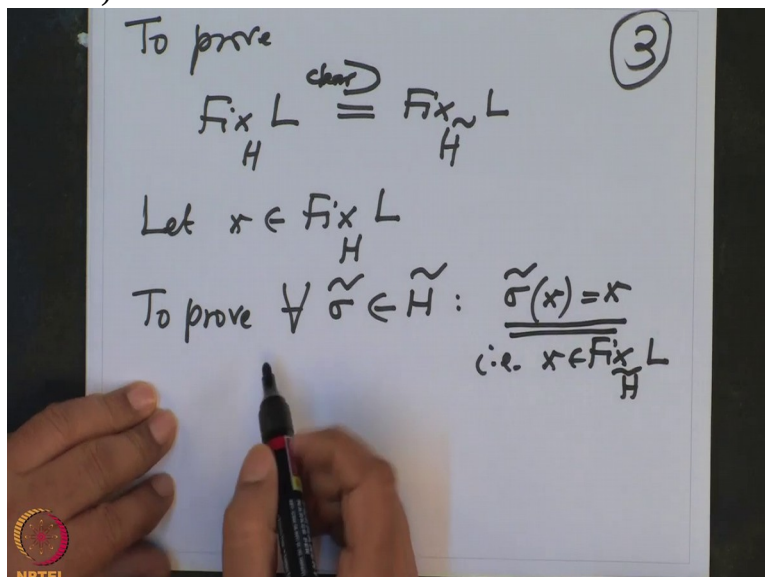 To prove
③
clear ⊃
Fix_H L = Fix_H̃ L
Let x ∈ Fix_H L
To prove ∀ σ̃ ∈ H̃ : σ̃(x) = x
i.e. x ∈ Fix_H̃ L
NPTEL